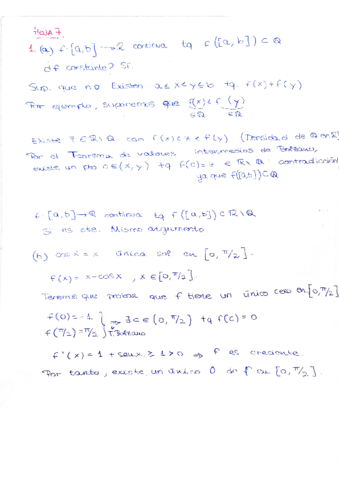 Hoja 7
1. (a) f: [a,b] → ℝ continua tq f([a,b]) ⊂ ℚ
¿f constante? Sí.
Sup. que no Existen a ≤ x < y ≤ b tq f(x) ≠ f(y)
Por ejemplo, suponemos que f(x) < f(y)
∈ℚ ∈ℚ
Existe z ∈ ℝ\ℚ con f(x) < z < f(y) (Densidad de ℚ en ℝ)
Por el Teorema de valores intermedios de Bolzano,
existe un pto c ∈ (x,y) tq f(c) = z ∈ ℝ\ℚ contradicción
ya que f([a,b]) ⊂ ℚ
f: [a,b] → ℝ continua tq f([a,b]) ⊂ ℝ\ℚ
Si es cte. Mismo argumento
(b) cos x = x única sol en [0, π/2].
f(x) = x - cos x , x ∈ [0, π/2].
Tenemos que probar que f tiene un único cero en [0, π/2]
f(0) = -1
f(π/2) = π/2 } ⇒ ∃ c ∈ (0, π/2) tq f(c) = 0
T. Bolzano
f'(x) = 1 + sen x ≥ 1 > 0 ⇒ f es creciente.
Por tanto, existe un único 0 de f en [0, π/2].